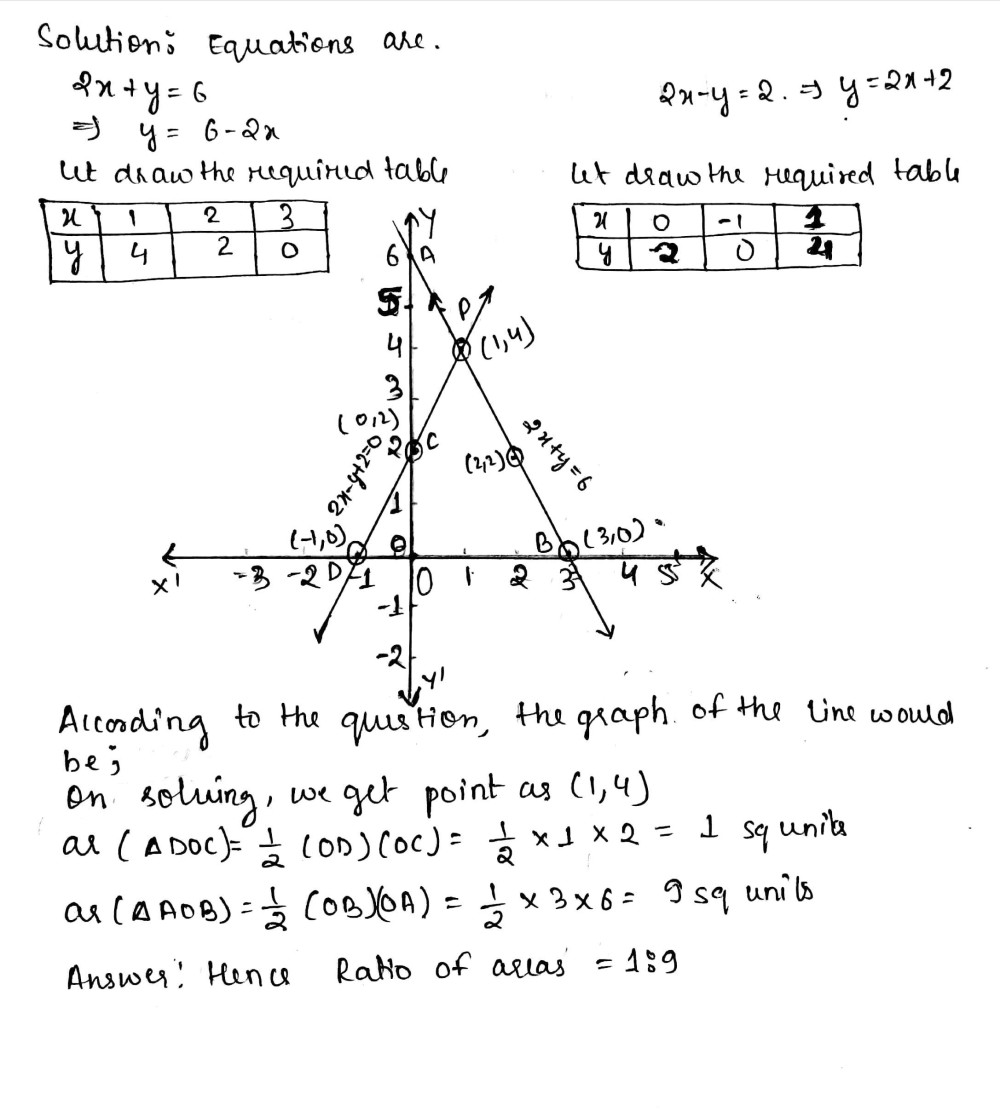 Solution: Equations are.
2x+y=6
2x-y=2. ⇒ y=2x+2
⇒ y= 6-2x
let draw the required table
let draw the required table
x 1 2 3
y 4 2 0
x 0 -1 1
y 2 0 4
Y
6 A
5
P
4 (1,4)
3
(0,2)
2 C
2x-y+2=0
(2,2)
2x+y=6
1
(-1,0)
B (3,0)
X' -3 -2 D -1 O 1 2 3 4 5 X
-1
-2
Y'
According to the question, the graph of the line would
be;
On solving, we get point as (1,4)
ar (ΔDOC)= 1/2 (OD)(OC)= 1/2 × 1 × 2 = 1 sq units
ar (ΔAOB)= 1/2 (OB)(OA) = 1/2 × 3 × 6 = 9 sq units
Answer: Hence Ratio of areas = 1:9